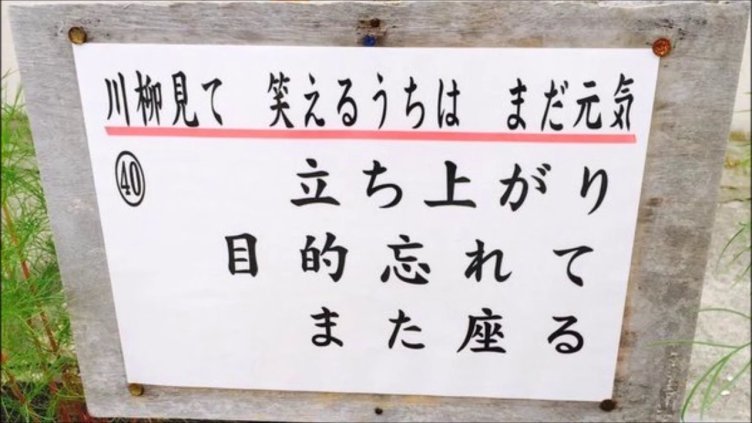 川柳見て　笑えるうちは　まだ元気
㊵　立ち上がり
目的忘れて
また座る